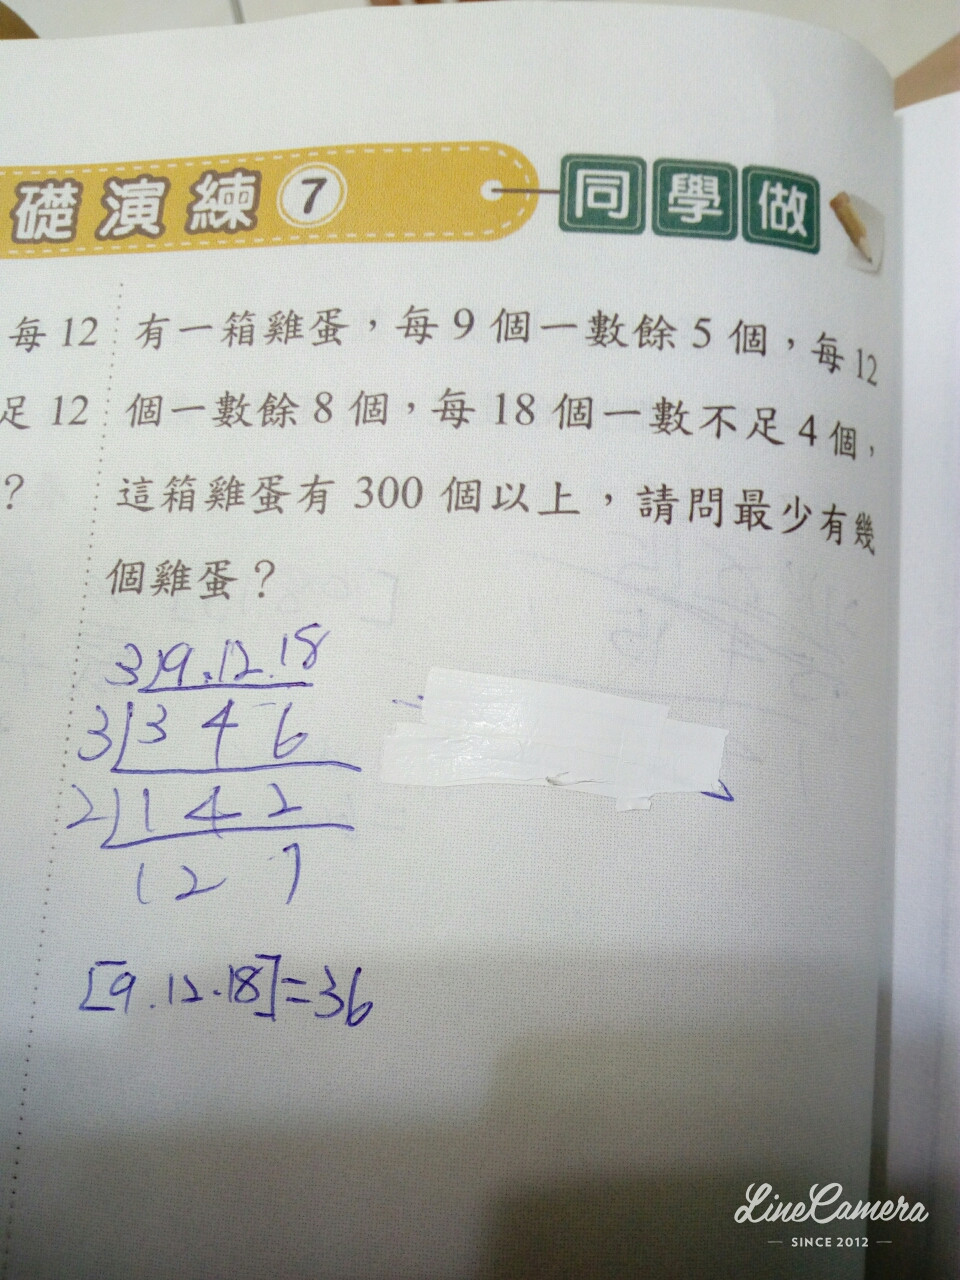 礎演練 7 同學做
每 12
足 12
?
有一箱雞蛋，每 9 個一數餘 5 個，每 12
個一數餘 8 個，每 18 個一數不足 4 個，
這箱雞蛋有 300 個以上，請問最少有幾
個雞蛋？
3 9.12.18
3 3 4 6
2 1 4 2
1 2 1
[9.12.18]=36
LineCamera
SINCE 2012